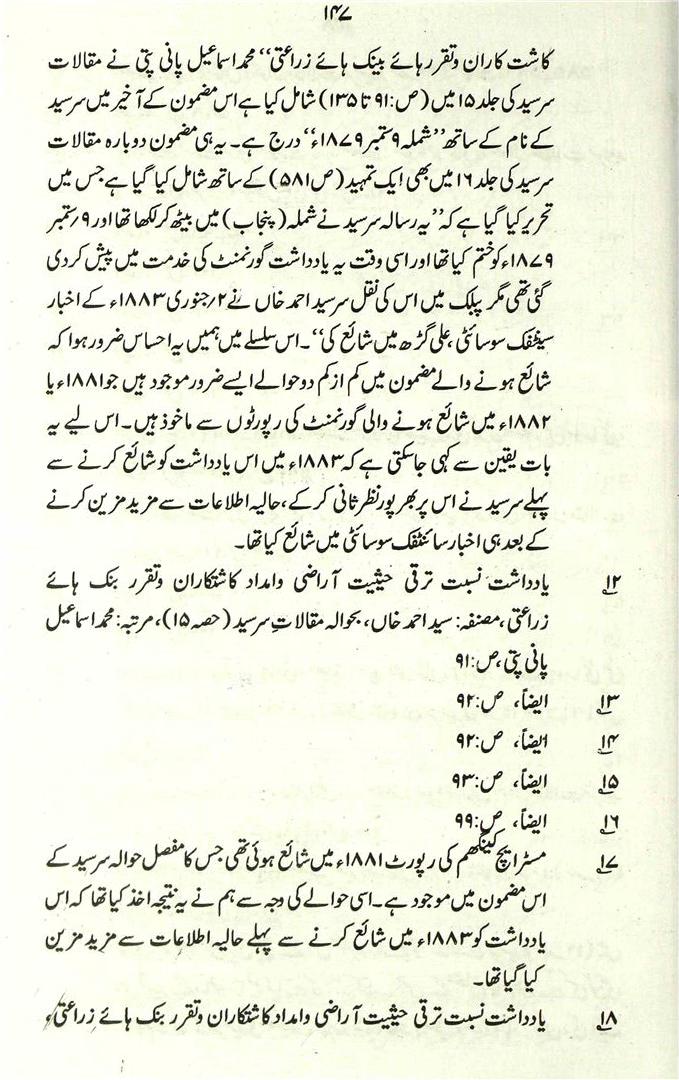 ۱۴۷
کاشت کاران و تقرر ہائے بینک ہائے زراعتی“ محمد اسماعیل پانی پتی نے مقالات
سرسید کی جلد ۱۵ میں (ص:۹۱ تا ۱۳۵) شامل کیا ہے اس مضمون کے آخیر میں سرسید
کے نام کے ساتھ ”شملہ ۹ ستمبر ۱۸۷۹ء“ درج ہے۔ یہ ہی مضمون دوبارہ مقالات
سرسید کی جلد ۱۶ میں بھی ایک تمہید (ص ۵۸۱) کے ساتھ شامل کیا گیا ہے جس میں
تحریر کیا گیا ہے کہ ”یہ رسالہ سرسید نے شملہ (پنجاب) میں بیٹھ کر لکھا تھا اور ۹/ستمبر
۱۸۷۹ء کو ختم کیا تھا اور اسی وقت یہ یادداشت گورنمنٹ کی خدمت میں پیش کردی
گئی تھی مگر پبلک میں اس کی نقل سرسید احمد خاں نے ۲/جنوری ۱۸۸۳ء کے اخبار
سیٹفک سوسائٹی، علی گڑھ میں شائع کی“۔ اس سلسلے میں ہمیں یہ احساس ضرور ہوا کہ
شائع ہونے والے مضمون میں کم از کم دو حوالے ایسے ضرور موجود ہیں جو ۱۸۸۱ء یا
۱۸۸۲ء میں شائع ہونے والی گورنمنٹ کی رپورٹوں سے ماخوذ ہیں۔ اس لیے یہ
بات یقین سے کہی جاسکتی ہے کہ ۱۸۸۳ء میں اس یادداشت کو شائع کرنے سے
پہلے سرسید نے اس پر بھرپور نظر ثانی کرکے، حالیہ اطلاعات سے مزید مزین کرنے
کے بعد ہی اخبار سائنٹفک سوسائٹی میں شائع کیا تھا۔
۱۲ یادداشت نسبت ترقی حیثیت آراضی وامداد کاشتکاران و تقرر بنک ہائے
زراعتی، مصنفہ: سید احمد خاں، بحوالہ مقالاتِ سرسید (حصہ ۱۵)، مرتبہ: محمد اسماعیل
پانی پتی، ص:۹۱
۱۳ ایضاً، ص:۹۲
۱۴ ایضاً، ص:۹۲
۱۵ ایضاً، ص:۹۳
۱۶ ایضاً، ص:۹۹
۱۷ مسٹر ایچ کینگھم کی رپورٹ ۱۸۸۱ء میں شائع ہوئی تھی جس کا مفصل حوالہ سرسید کے
اس مضمون میں موجود ہے۔ اسی حوالے کی وجہ سے ہم نے یہ نتیجہ اخذ کیا تھا کہ اس
یادداشت کو ۱۸۸۳ء میں شائع کرنے سے پہلے حالیہ اطلاعات سے مزید مزین
کیا گیا تھا۔
۱۸ یادداشت نسبت ترقی حیثیت آراضی وامداد کاشتکاران و تقرر بنک ہائے زراعتی،